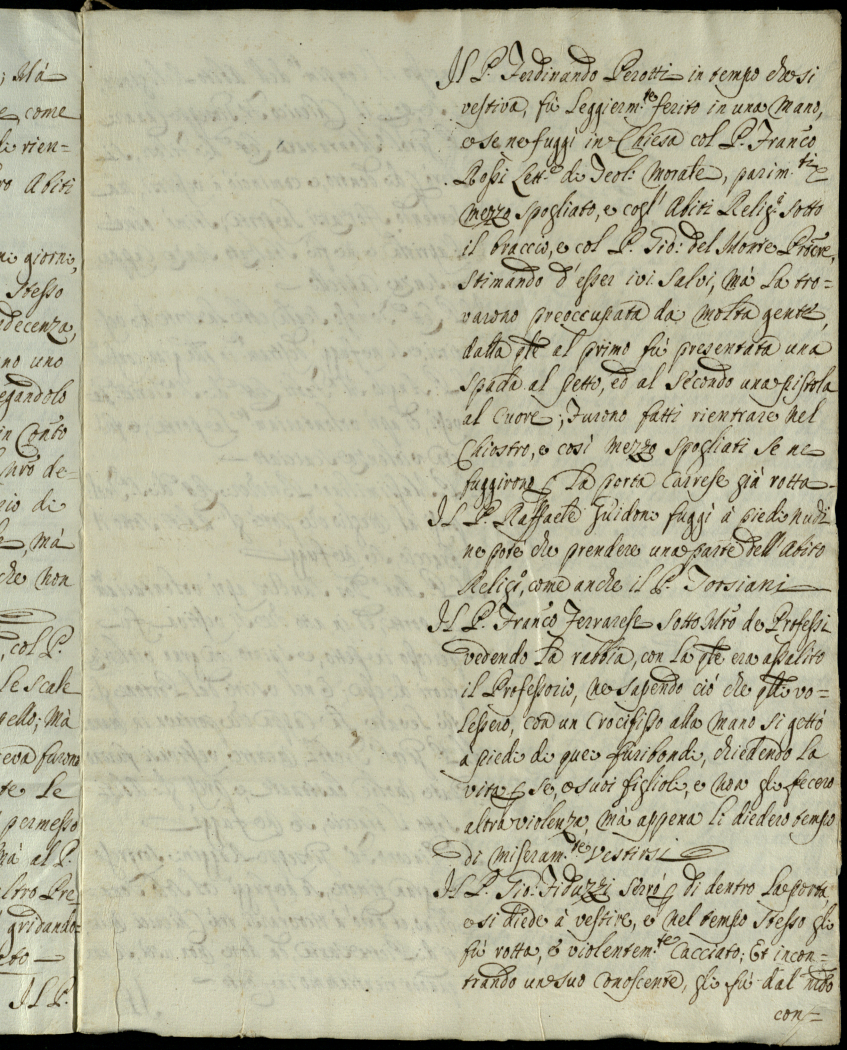 ; Mà
e come
de rien=
ro Abiti
ne giorni,
Stesso
ndecenza,
no uno
egandolo
in Conto
de=
gio di
, mà
che non
, col P.
le scale
pello; Mà
eva furono
te le
permesso
mà al P.
altro Pre
gridando=
oto —
Il P.
Il P. Ferdinando Perotti in tempo che si
vestiva, fù leggierm.te ferito in una mano,
e se ne fuggì in Chiesa col P. Franc.o
Rossi Lett.e di Teol: Morale, parim.ti
mezzo spogliato, e cogl' Abiti Relig.i sotto
il braccio, e col P. Gio: del Monte Pro͞re,
stimando d'esser ivi salvi, mà la tro=
varono preoccupata da molta gente,
dalla q͞le al primo fù presentata una
spada al petto, ed al secondo una pistola
al Cuore; Furono fatti rientrare nel
Chiostro, e così mezzo spogliati se ne
fuggirono p la porta Carrese già rotta.
Il P. Raffaele Guidone fuggì à piedi nudi
ne potè che prendere una parte dell'Abito
Relig.o, come anche il P. Torsiani
Il P. Franc.o Ferrarese sotto M͞ro de Professi
vedendo la rabbia, con la q͞le era assalito
il Professorio, ne sapendo ciò che q͞lli vo=
lessero, con un Crocifisso alla mano si gettò
à piedi di quei furibondi, chiedendo la
vita p se, e suoi figlioli, e non gli fecero
altra violenza, mà appena li diedero tempo
di miseram.te vestirsi
Il P. Gio: Fiduzzi serrò p di dentro la porta
e si diede à vestire, e nel tempo stesso gli
fù rotta, e violentem.te cacciato; Et incon=
trando un suo Conoscente, gli fù dal nudo
con=